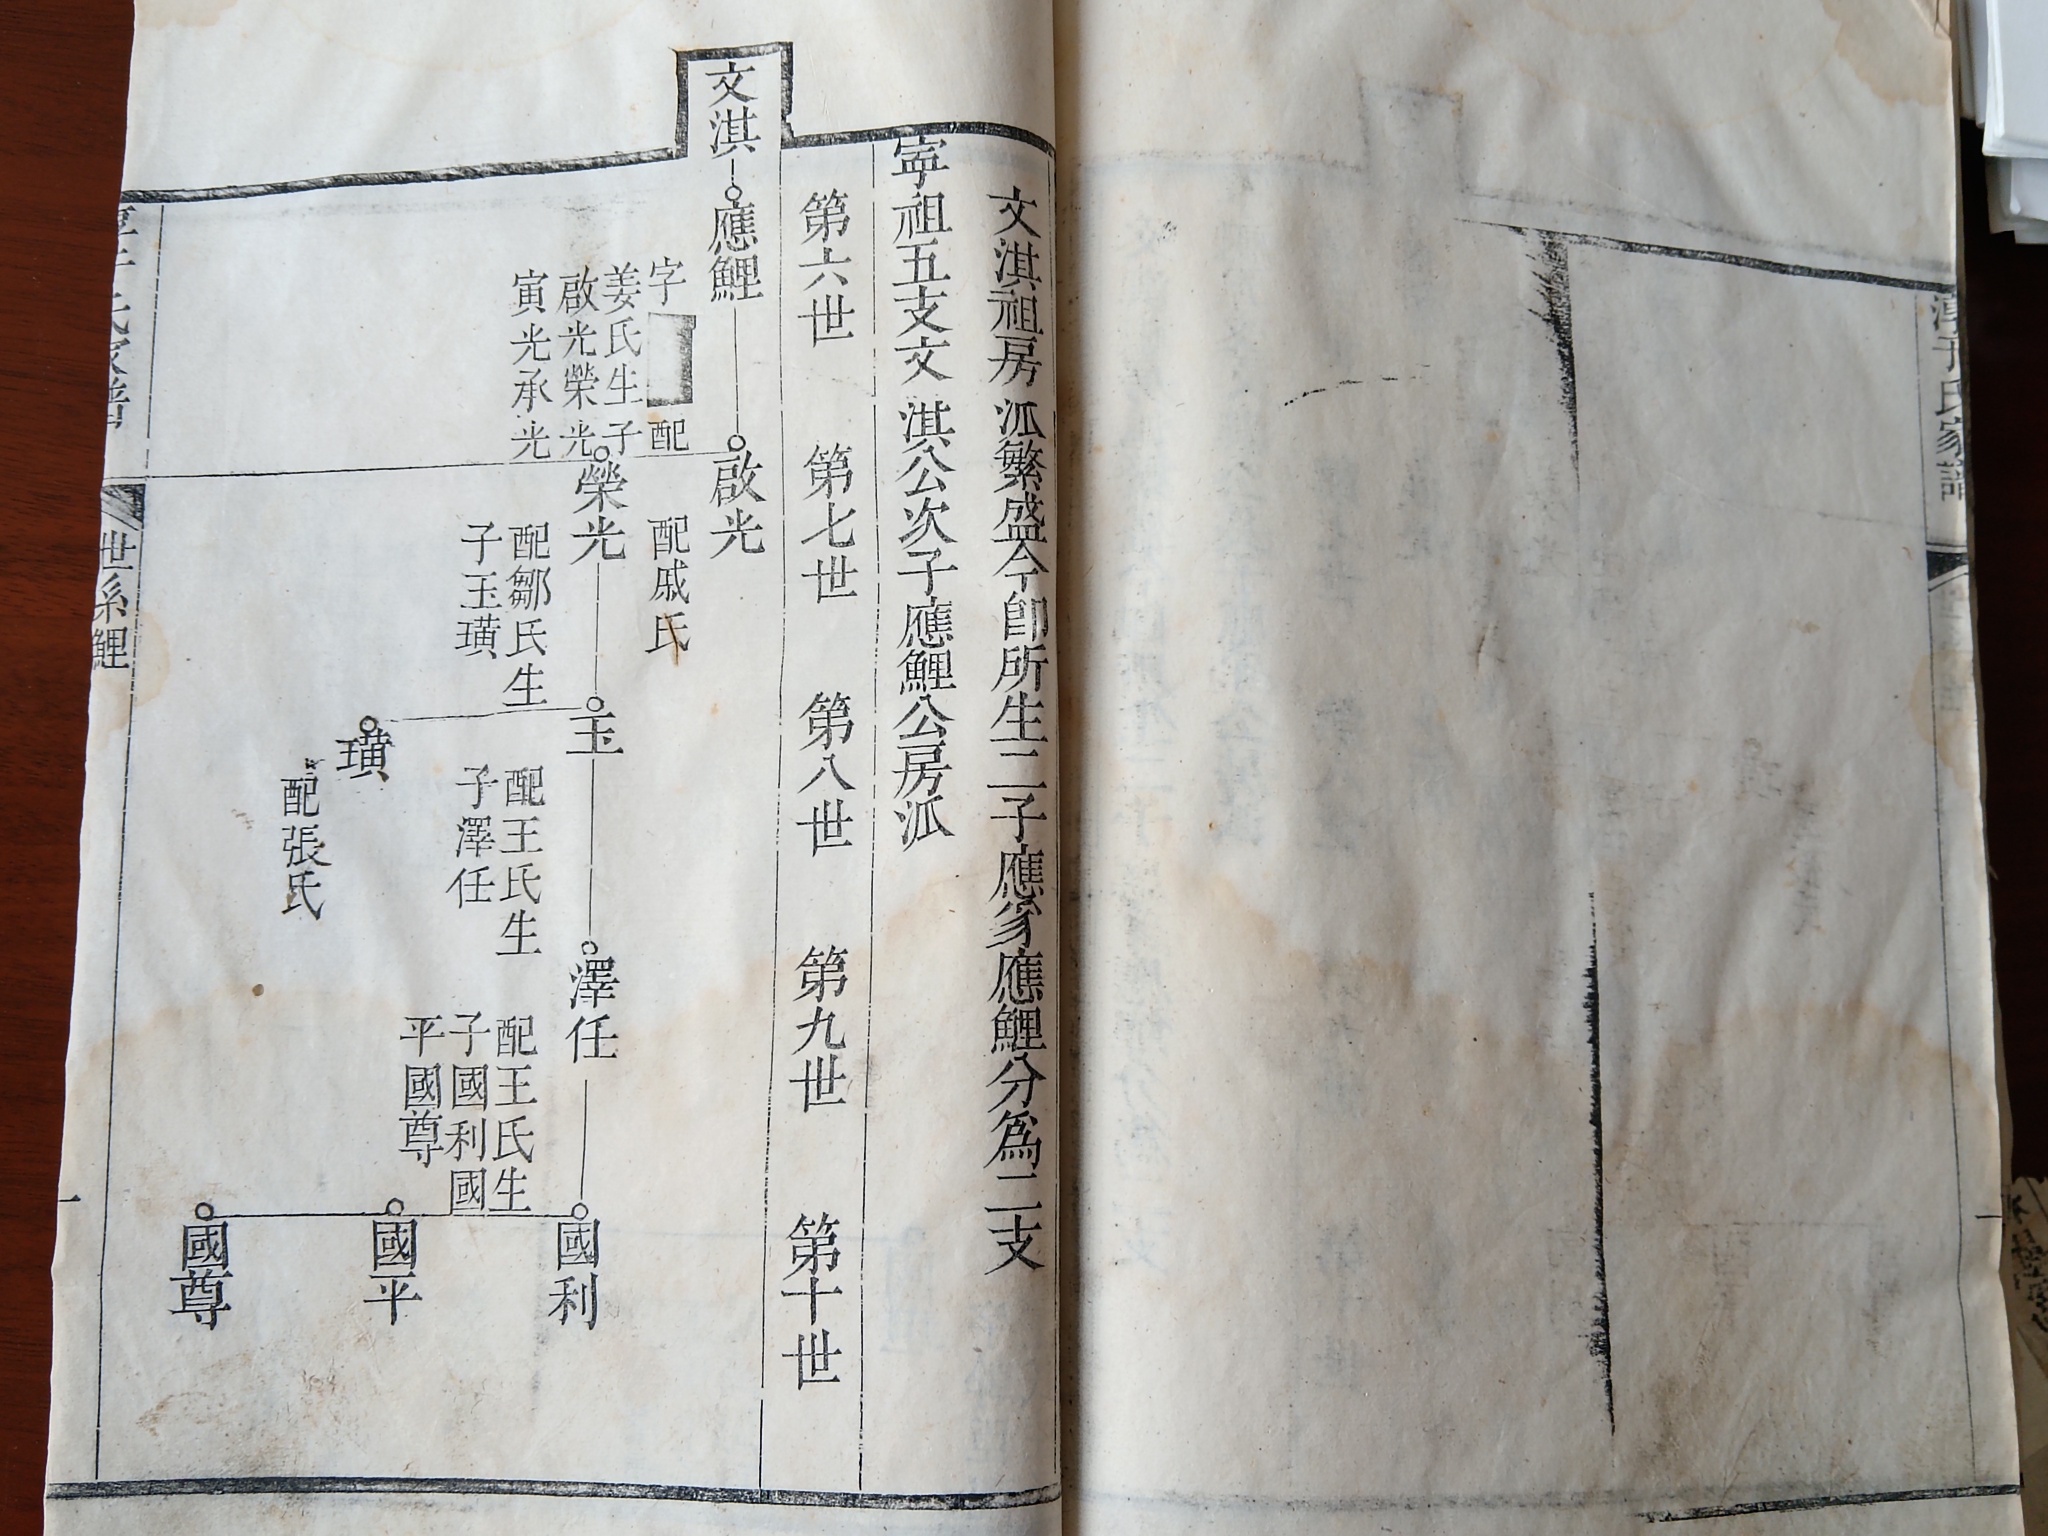 文淇祖房派繁盛今卽所生二子應家應鯉分爲二支
寧祖五支文淇公次子應鯉公房派
第六世
第七世
第八世
第九世
第十世
文淇
應鯉
字 配
姜氏生子
啟光榮光
寅光承光
啟光
配戚氏
榮光
配鄒氏生
子玉璜
玉
配王氏生
子澤任
璜
配張氏
澤任
配王氏生
子國利國
平國尊
國利
國平
國尊
氏家譜
世系鯉
一
氏家譜